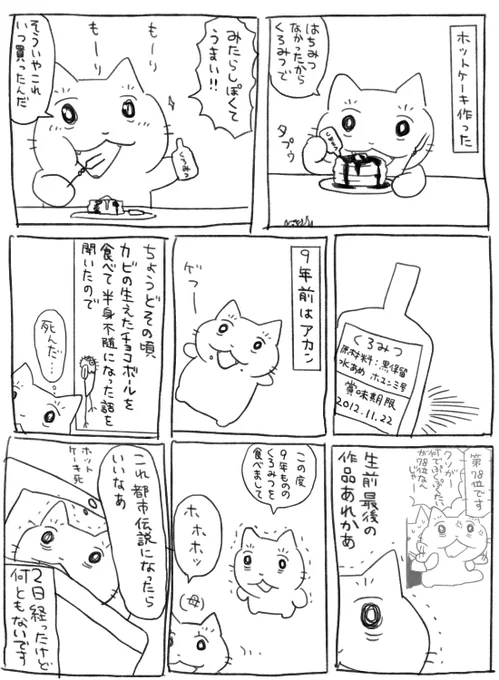 ホットケーキ作った
はちみつ
なかったから
くろみつで
タプゥ
みたらしぽくて
うまい!!
もーり
もーり
くろみつ
そういやこれ
いつ買ったんだ
くろみつ
原材料:黒保留
水あめ ホエンミ号
賞味期限
2012.11.22
9年前はアカン
ゲフー
ちょうどその頃、
カビの生えたチョコボールを
食べて半身不随になった話を
聞いたので
死んだ…
第78位です
クソが
何でぼくの
が78位なん
じゃ
生前最後の
作品あれかあ
この度
9年ものの
くろみつを
食べまして
ホホホッ
(母)
これ都市伝説になったら
いいなあ
ホット
ケーキ死
2日経ったけど
何ともないです